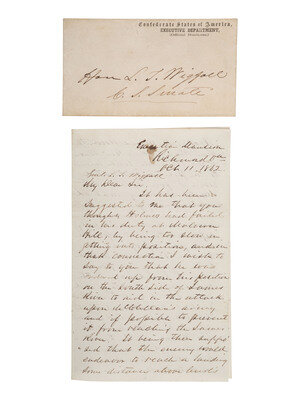 Confederate States of America,
EXECUTIVE DEPARTMENT,
(Official Business)
Hon L. T. Wigfall
C. S. Senate
Executive Mansion
Richmond Va
Oct 11. 1862
Gen'l L. T. Wigfall
My Dear Sir,
It has been
suggested to me that you
thought Holmes had failed
in his duty at Malvern
Hill, by being too slow in
getting into position, and under
that conviction I wish to
say to you that he was
up from his position
on the south side of James
River to aid in the attack
upon McClellan's army
and if possible to prevent
it from reaching the James
River. It being then suppo
sed that the enemy would
endeavor to reach a landing
some distance above